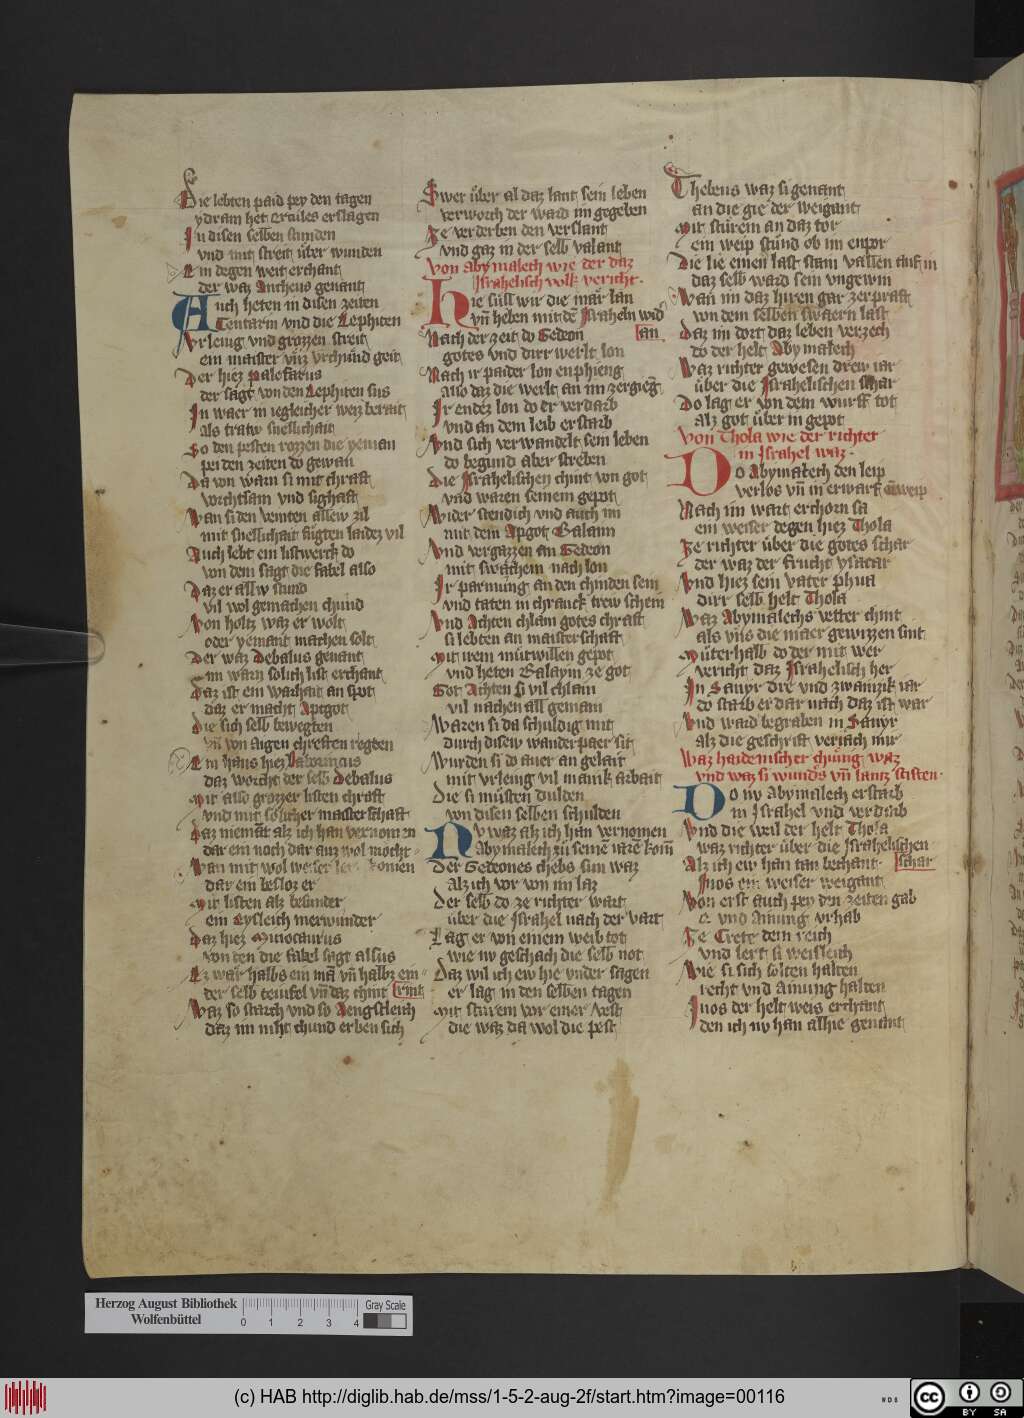 Die lebten paid pey den tagen
ydram het Ercules erslagen
In disen selben stunden
vnd mit streit über wunden
Ein degen weit erchant
der waz Antheus genant
Auch heten in disen zeiten
Tentarin vnd die Lephiten
Vrleug vnd grozzen streit
ein maister
Der hiez Palefatus
der sagt von den Lephiten sus
In waer in iegleicher weiz berait
als tratw snellichait
So den pesten rozzen die yeman
pei den zeiten do gewan
Da von warn si mit chraft
vorchtsam vnd sighaft
Wan si den veinten allew zil
mit snellichait fůgten laidez vil
Auch lebt ein listwerch do
von dem sagt die fabel also
Daz er allw stund
vil wol gemachen chund
Von holtz waz er wolt
oder yemant machen solt
Der waz Dedalus genant
im warn solich list erchant
Daz ist ein warhait an spot
daz er macht Aptgot
Die sich selb bewegten
vn̄ von augen chreften regten
Ein haus hiez
daz worcht der selb Dedalus
Mit also grozzer listen chraft
vnd mit solicher maisterschaft
Daz niemāt alz ich han vernomen
dar ein noch dar auz wol mocht
Wan mit wol weiser komen
dar ein besloz er
Mit listen alz besunder
ein Eysleich merwunder
Daz hiez Minotaurus
von den die fabel sagt alsus
Ez war halbs ein mā vn̄ halbz ein
der selb teufel vn̄ daz chint rint
Waz so starch vnd so Aengstleich
daz im niht chund erben sich
Swer über al daz lant sein leben
verworch der ward im gegeben
Ze verderben den verslant
vnd gaz in der selb valant
Von abymalech wie der daz
Israhelisch volk vericht.
Hie süll wir die mär lan
vn̄ heben mit dē Israheln wid
Nach der zeit do Gedeon an
gotes vnd dirr werlt lon
Nach ir paider lon enphieng
also daz die werlt an im zergieg
Ir endez lon do er verdarb
vnd an dem leib erstarb
Vnd sich verwandelt sein leben
do begund aber streben
Die Israhelischen chint von got
vnd waren seinem gepot
Wider stendich vnd auch im
mit dem Apgot Balaim
Vnd vergazzen an Gedeon
mit swachem nach lon
Ir parmung an den chinden sein
vnd taten in chranck trew schein
Vnd Achten chlain gotes chraft
si lebten an maisterschaft
Mit irem mütwillen gepot
vnd heten Balaym ze got
Got Achten si vil chlain
vil nachen all gemain
Waren si da schuldig mit
durch disew wanderpaer sit
Wurden si do auer an gelait
mit vrleug vil manik arbait
Die si müsten dulden
von disen selben schulden
Nv waz alz ich han vernomen
Abymalech zü seinē iarē kom̄
Der Gedeones chebs sun waz
alz ich vor von im laz
Der selb do ze richter wart
über die Israhel nach der vart
Lag er von einem weib tot
wie nv geschach die selb not
Daz wil ich ew hie vnder sagen
er lag in den selben tagen
Mit sturem vor einer vest
die waz da wol die pest
Thebeus waz si genant
an die gie der weigant
Mit stürem an daz tor
ein weip stůnd ob im enpor
Die lie einen last stain vallen auf in
daz selb ward sein vngewin
Wan im daz hiren gar zerprast
von dem selben swaern last
Daz im dort daz leben verzech
do der helt Abymalech
Waz richter gewesen drew iar
über die Israhelischen schar
Do lag er von dem wurff tot
alz got über in gepot
Von Thola wie der richter
in Israhel waz.
Do Abymalech den leip
verlos vn̄ in erwarf ein weip
Nach im wart erchorn sa
ein weiser degen hiez Thola
Ze richter über die gotes schar
der waz der frucht ysacar
Vnd hiez sein vater phua
dirr selb helt Thola
Waz Abymalechs vetter chint
als vns die maer gewizzen sint
Müterhalb do der mit wer
vericht daz Israhelisch her
In Sanyr dre vnd zwainzik iar
do starb er dar nach daz ist war
Vnd ward begraben in Sanyr
alz die geschrift veriach mir
Waz haidenischer chüng waz
vnd waz si wunders vn̄ lantz stiften.
Do nv Abymalech erstarb
in Israhel vnd verdarb
Vnd die weil der helt Thola
waz richter über die Israhelischen
Alz ich ew han tan bechant schar
Inos ein weiser weigant
Von erst auch pey den zeiten gab
E vnd Ainung vrhab
Ze Crete dem reich
vnd lert si weisleich
Wie si sich solten halten
recht vnd Ainung halten
Inos der helt weis erchant
den ich nv han alhie genant
Herzog August Bibliothek
Wolfenbüttel
0 1 2 3 4
Gray Scale
(c) HAB http://diglib.hab.de/mss/1-5-2-aug-2f/start.htm?image=00116
cc BY SA